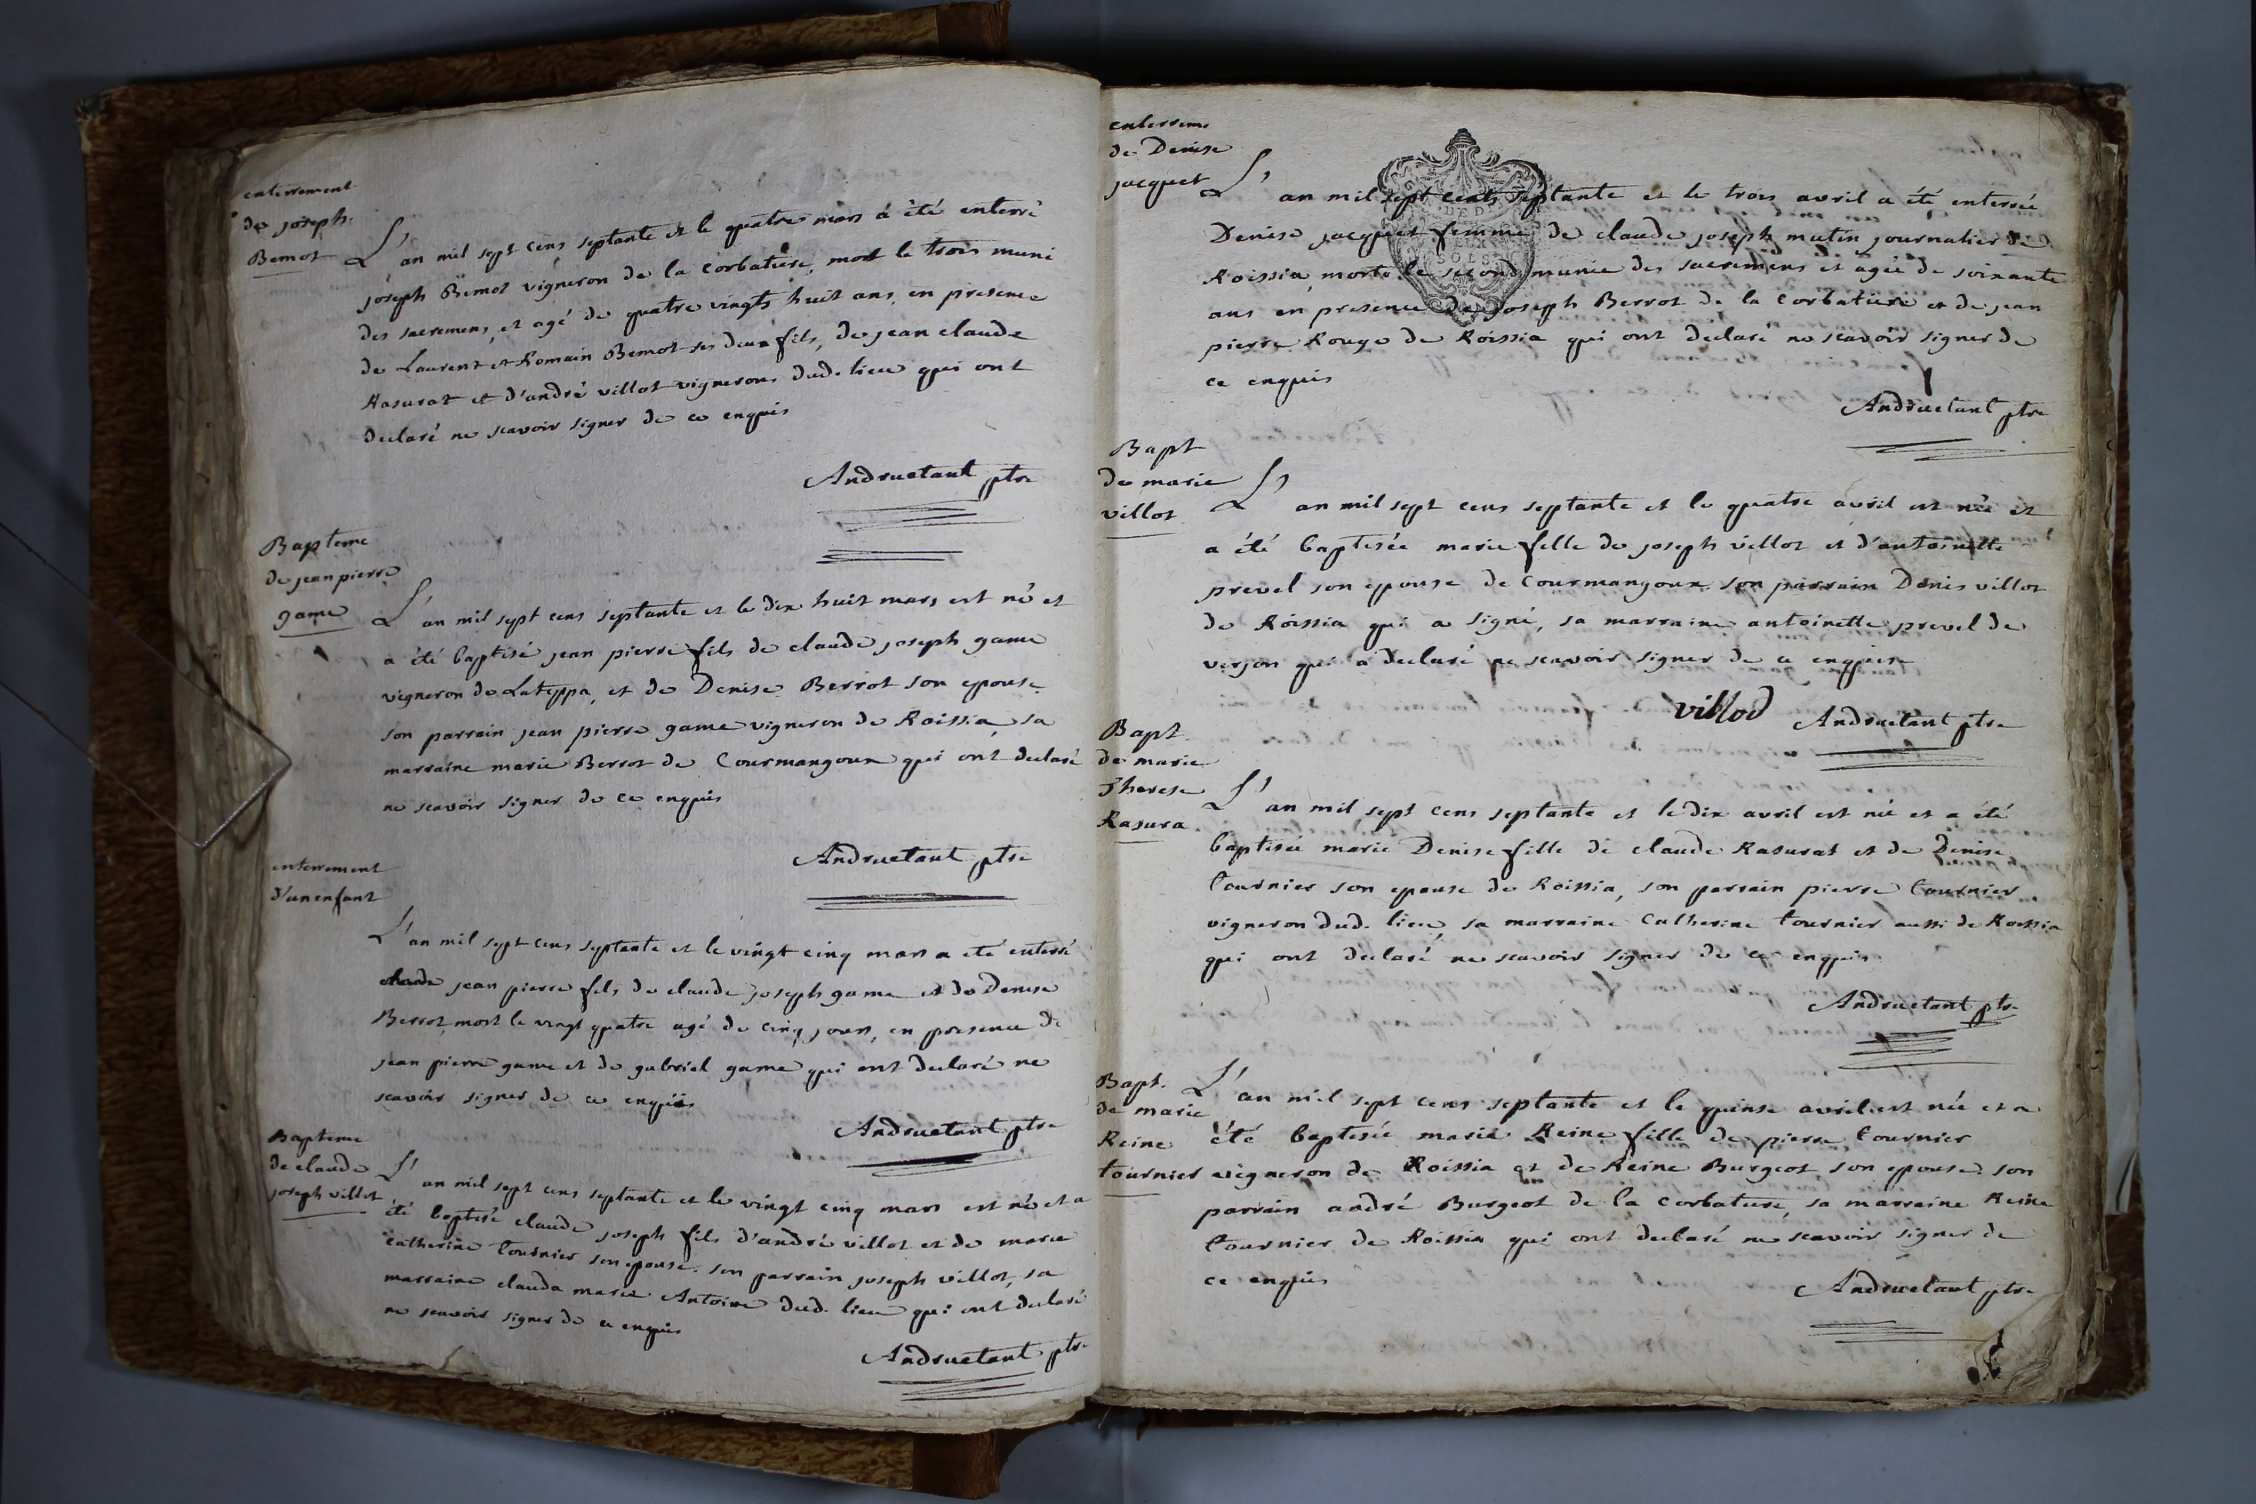 enterrement
de joseph
Bemot
L'an mil sept cens septante et le quatre mars a été enterré
joseph Bemot vigneron de la Corbatiere, mort le trois muni
des sacremens, et agé de quatre vingts huit ans, en presence
de Laurent et Romain Bemot ses deux fils, de jean claude
Rasurat et d'andré villot vignerons dud. lieu qui ont
declaré ne scavoir signer de ce enquis
Andruetant ptre
Bapteme
de jean pierre
game
L'an mil sept cens septante et le dix huit mars est né et
a été baptisé jean pierre fils de claude joseph game
vigneron de Lateppa, et de Denise Berrot son epouse
son parrain jean pierre game vigneron de Roissia, sa
marraine marie Berrot de Courmangoux qui ont declaré
ne scavoir signer de ce enquis
Andruetant ptre
enterrement
d'un enfant
L'an mil sept cens septante et le vingt cinq mars a été enterré
jean pierre fils de claude joseph game et de Denise
Berrot, mort le vingt quatre agé de cinq jours, en presence de
jean pierre game et de gabriel game qui ont declaré ne
scavoir signer de ce enquis
Andruetant ptre
Bapteme
de claude
joseph villot
L'an mil sept cens septante et le vingt cinq mars est né et a
été baptisé claude joseph fils d'andré villot et de marie
catherine tournier son epouse. son parrain joseph villot, sa
marraine clauda marie Antoine dud. lieu qui ont declaré
ne scavoir signer de ce enquis
Andruetant ptre
enterrem
de Denise
jacquet
L'an mil sept cents septante et le trois avril a été enterrée
Denise jacquet femme de claude joseph mutin journalier de
Roissia, morte le second munie des sacremens et agée de soixante
ans en presence de joseph Berrot de la Corbatiere et de jean
pierre Rouge de Roissia qui ont declaré ne scavoir signer de
ce enquis
Andruetant ptre
Bapt
de marie
villot
L'an mil sept cens septante et le quatre avril est née et
a été baptisée marie fille de joseph villot et d'antoinette
prevel son epouse de Courmangoux son parrain Denis villot
de Roissia qui a signé, sa marraine antoinette prevel de
verjon qui a declaré ne scavoir signer de ce enquise
villod Andruetant ptre
Bapt
de marie
Therese
Rasura
L'an mil sept cens septante et le dix avril est née et a été
baptisée marie Denise fille de claude Rasurat et de Denise
tournier son epouse de Roissia, son parrain pierre tournier
vigneron dud. lieu, sa marraine Catherine tournier aussi de Roissia
qui ont declaré ne scavoir signer de ce enquis
Andruetant ptre
Bapt.
de marie
Reine
tournier
L'an mil sept cens septante et le quinse avril est née et a
été baptisée marie Reine fille de pierre tournier
vigneron de Roissia et de Reine Burgeot son epouse. son
parrain andré Burgeot de la Corbature, sa marraine Reine
tournier de Roissia qui ont declaré ne scavoir signer de
ce enquis
Andruetant ptre